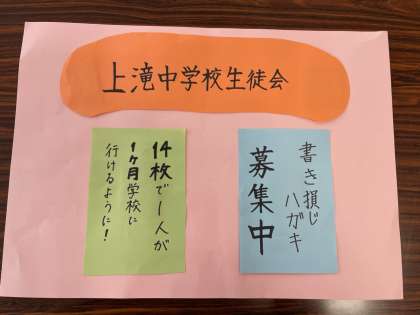 上滝中学校生徒会
書き損じ
ハガキ
募集中
14枚で1人が
1ヶ月学校に
行けるように!